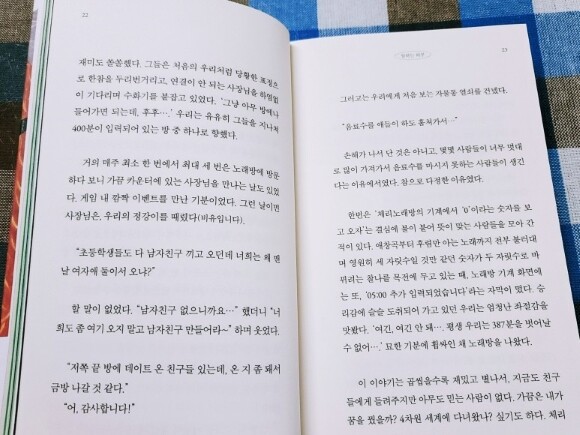 22
재미도 쏠쏠했다. 그들은 처음의 우리처럼 당황한 표정으
로 한참을 두리번거리고, 연결이 안 되는 사장님을 하염없
이 기다리며 수화기를 붙잡고 있었다. '그냥 아무 방에나
들어가면 되는데, 후후…' 우리는 유유히 그들을 지나쳐
400분이 입력되어 있는 방 중 하나로 향했다.
거의 매주 최소 한 번에서 최대 세 번은 노래방에 방문
하다 보니 가끔 카운터에 있는 사장님을 만나는 날도 있었
다. 게임 내 깜짝 이벤트를 만난 기분이었다. 그런 날이면
사장님은, 우리의 정강이를 때렸다(비유입니다).
"초등학생들도 다 남자친구 끼고 오던데 너희는 왜 맨
날 여자애 둘이서 오나?"
할 말이 없었다. "남자친구 없으니까요…" 했더니 "너
희도 좀 여기 오지 말고 남자친구 만들어라~" 하며 웃었다.
"저쪽 끝 방에 데이트 온 친구들 있는데, 온 지 좀 돼서
금방 나갈 것 같다."
"어, 감사합니다!"
23
그러고는 우리에게 처음 보는 자물통 열쇠를 건넸다.
"음료수를 애들이 하도 훔쳐가서…"
손해가 나서 단 것은 아니고, 몇몇 사람들이 너무 멋대
로 많이 가져가서 음료수를 마시지 못하는 사람들이 생긴
다는 이유에서였다. 참으로 다정한 이유였다.
한번은 '체리노래방의 기계에서 '0'이라는 숫자를 보
고 오자'는 결심에 물이 붙어 뜻이 맞는 사람들을 모아 간
적이 있다. 애창곡부터 추럼만 아는 노래까지 전부 불러대
며 영원히 세 자릿수일 것만 같던 숫자가 두 자릿수로 바
뀌려는 찰나를 목전에 두고 있는 때, 노래방 기계 화면에
는 또, '05:00 추가 입력되었습니다'라는 자막이 떴다. 승
리감에 슬슬 도취되어 가고 있던 우리는 엄청난 좌절감을
맛봤다. '여긴, 여긴 안 돼… 평생 우리는 387분을 벗어날
수 없어…' 묘한 기분에 휩싸인 채 노래방을 나왔다.
이 이야기는 꿈썰을수록 재밌고 별나서, 지금도 친구
들에게 들려주지만 아무도 믿는 사람이 없다. 가끔은 내가
꿈을 꿨을까? 4차원 세계에 다녀왔나? 싶기도 하다. 체리